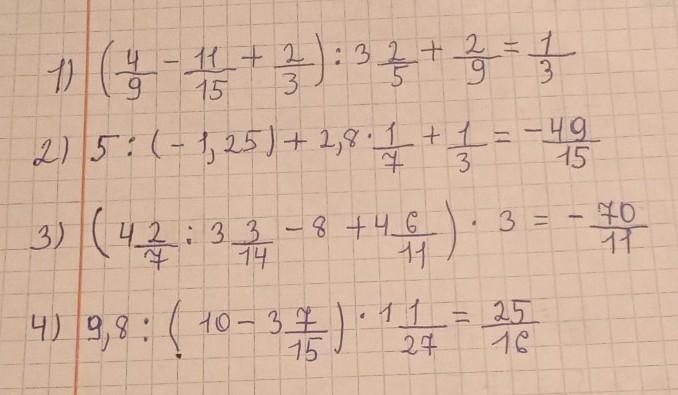 1) (4/9 - 11/15 + 2/3) : 3 2/5 + 2/9 = 1/3
2) 5 : (-1,25) + 2,8 · 1/7 + 1/3 = -49/15
3) (4 2/7 : 3 3/14 - 8 + 4 6/11) · 3 = -70/11
4) 9,8 : (10 - 3 7/15) · 1 1/27 = 25/16